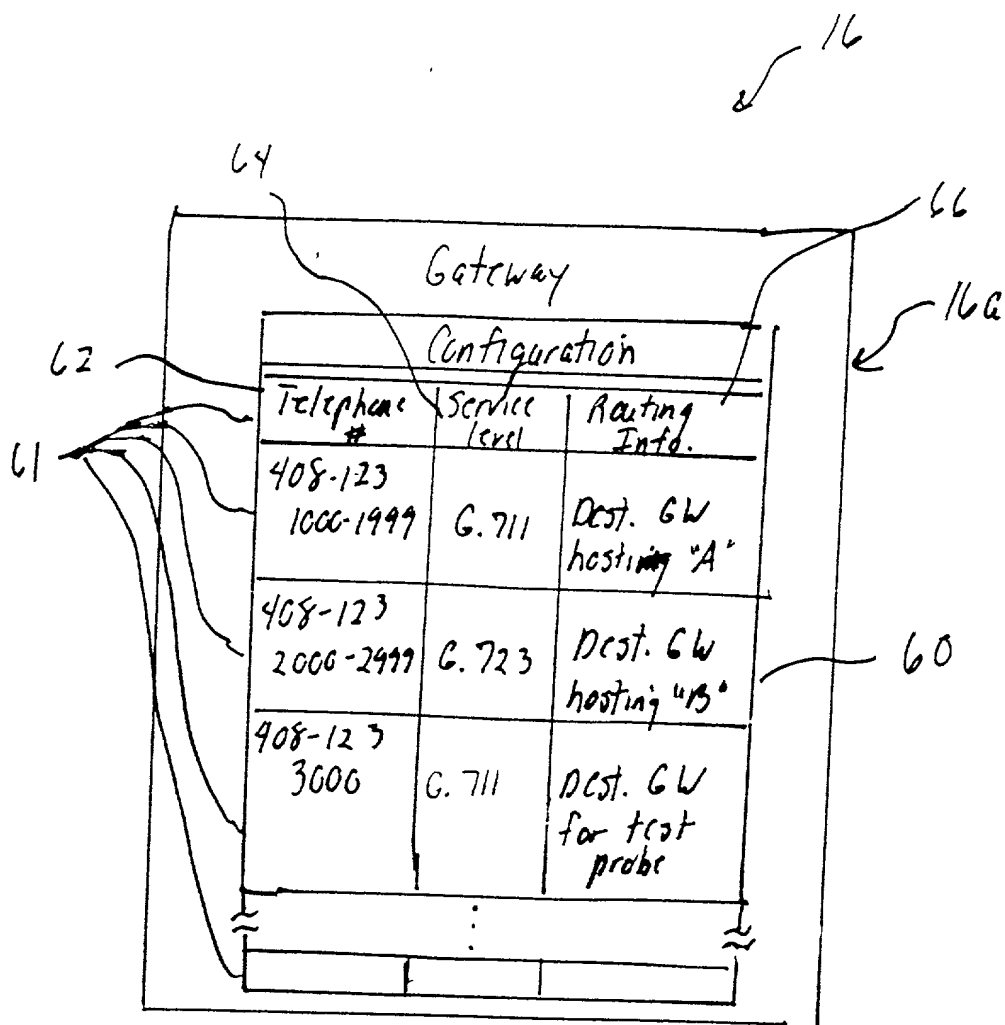 16
64
66
Gateway
16a
Configuration
62
Telephone # Service level Routing Info.
61
408-123
1000-1999 G.711 Dest. GW hosting "A"
408-123
2000-2999 G.723 Dest. GW hosting "B"
60
408-123
3000 G.711 Dest. GW for test probe